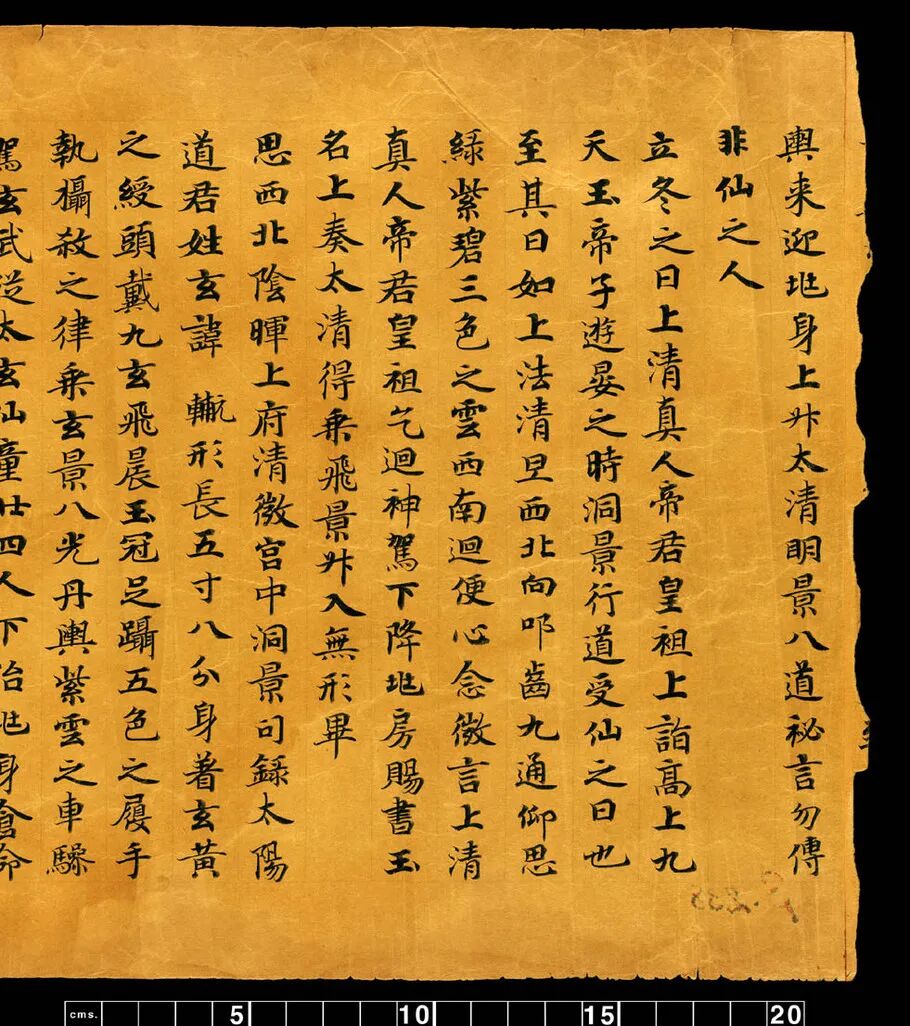 輿来迎𠰥身上升太清明景八道秘言勿傳
非仙之人
立冬之日上清真人帝君皇祖上詣髙上九
天玉帝子遊晏之時洞景行道受仙之日也
至其日如上法清旦西北向叩齒九通仰思
綠紫碧三色之雲西南迴便心念微言上清
真人帝君皇祖乞迴神駕下降房賜書玉
名上奏太清得乗飛景升入無形畢
思西北陰暉上府清微宫中洞景司録太陽
道君姓玄諱 形長五寸八分身著玄黄
之綬頭戴九玄飛晨玉冠足躡五色之履手
執攝赦之律乗玄景八光丹輿紫雲之車驂
駕玄武従太玄仙童廿四人下治身會命
cms. 5 10 15 20